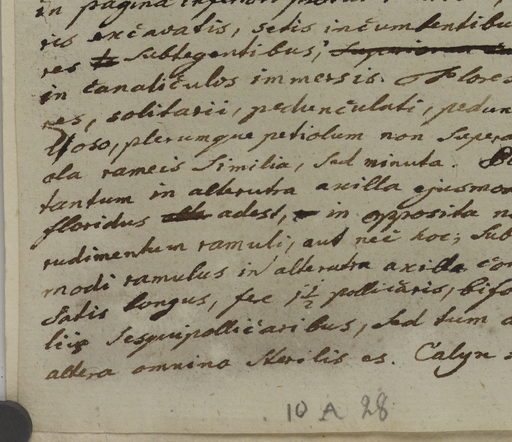 in pagina inferiori
ris excavatis, setis incumbentibus
res subtegentibus,
in canaliculos immersis. Flores
res, solitarii, pedunculati, pedun
loso, plerumque petiolum non supera
ola rameis similia, sed minuta.
tantum in alterutra axilla ejusmo
floridus adest, in opposita n
rudimentum ramuli, aut nec hoc; sub
modi ramulus in alterutra axilla con
satis longus, fere 1½ pollicaris, bifo
liis sesquipollicaribus, sed tum a
altera omnino sterilis es. Calyx
10 A 28